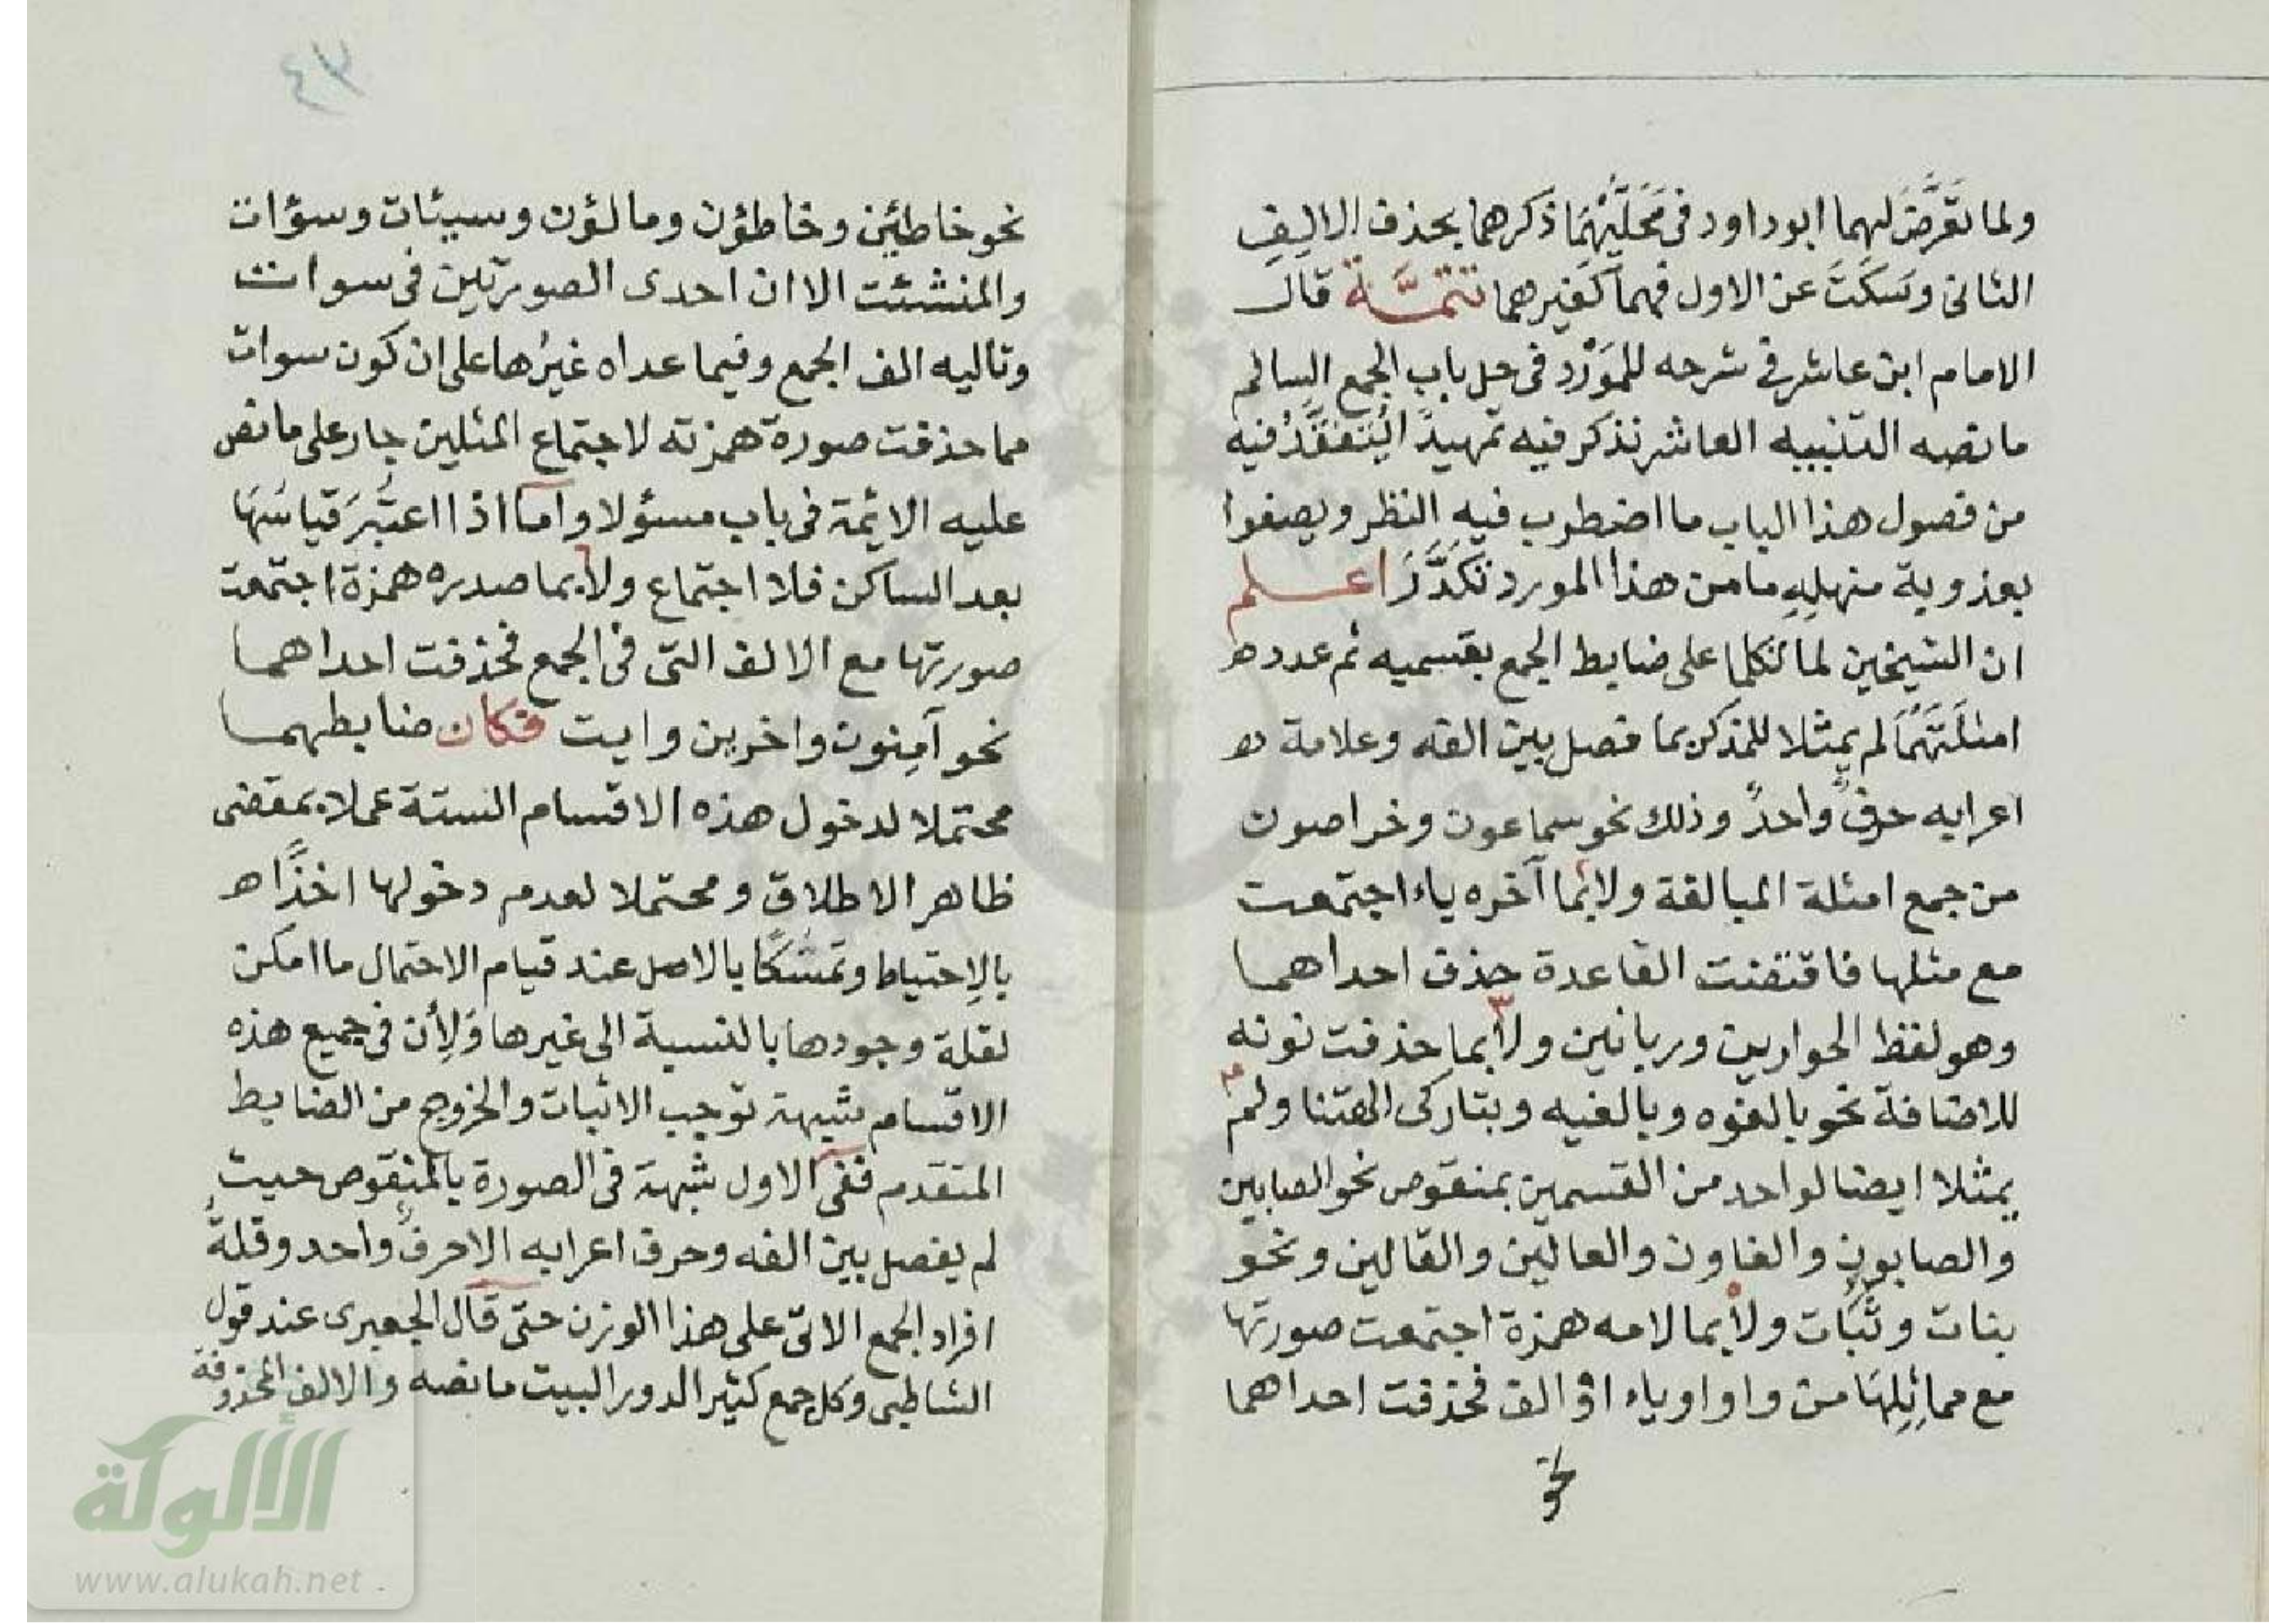 ولما تَعَرَّضَ لهما ابو داود فى مَحَلَّيْهِمَا ذكرهما بحذف الالِفِ
الثانى وسَكَتَ عن الاول فهما كغيرهما تتمَّة قال
الامام ابن عاشر فى شرحه للمَوْرِد فى حل باب الجمع السالم
ما نصه التنبيه العاشر نذكر فيه تمهيدًا لِيُتَفَقَّدُ فيه
من فصول هذا الباب ما اضطرب فيهِ النظر ويصفوا
بعذوبة منهلِهِ ما من هذا المورد تكَدَّرَ اعلم
ان الشيخين لما تكلما على ضابط الجمع بقسميه ثم عددا
امثلَتَهُمَا لم يمثلا للمذكر بما فصل بين الفه وعلامة
اعرابه حرفٌ واحدٌ وذلك نحو سماعون وخراصون
من جمع امثلة المبالغة ولا بما آخره ياء اجتمعت
مع مثلها فاقتضت القاعدة حذف احداهما
وهو لفظ الحوارين وربانين ولا بما حذفت نونه
للاضافة نحو بالغوه وبالغيه وبتاركى الهتنا ولم
يمثلا ايضا لواحد من القسمين بمنقوص نحو الصابين
والصابون والغاون والعالين والقالين ونحو
بنات وثُبَات ولا بما لامه همزة اجتمعت صورتها
مع مماثِلِهَا من واو او ياء اوْ الف فحذفت احداهما
نحو
٤٣
نحو خاطئين وخاطؤن ومالؤن وسيئات وسؤات
والمنشئت الا ان احدى الصورتين فى سوات
وتاليه الف الجمع وفيما عداه غيرُها على ان كون سوات
مما حذفت صورة همزته لاجتماع المثلين جار على ما نص
عليه الائمة فى باب مسؤلا واما اذا اعتُبِرَ قياسُهَا
بعد الساكن فلا اجتماع ولا بما صدره همزة اجتمعت
صورتها مع الالف التى فى الجمع فحذفت احداهما
نحو آمِنون واخرين وايت فكان ضابطهما
محتملا لدخول هذه الاقسام الستة عملا بمقضى
ظاهر الاطلاق ومحتملا لعدم دخولها اخذًا
بالاِحتياط وتمسُّكًا بالاصل عند قيام الاحتمال ما امكن
لقلة وجودها بالنسبة الى غيرها وَلِأن فى جميع هذه
الاقسام شبهة توجب الاثبات والخروج من الضابط
المتقدم ففى الاول شبهة فى الصورة بالمنقوص حيث
لم يفصل بين الفه وحرف اعرابه الا حرفٌ واحد وقلةُ
افراد الجمع الاتى على هذا الوزن حتى قال الجعبرى عند قول
الشاطبى وكل جمع كثير الدور البيت ما نصه والالف المحذوفة
الألوكة
www.alukah.net